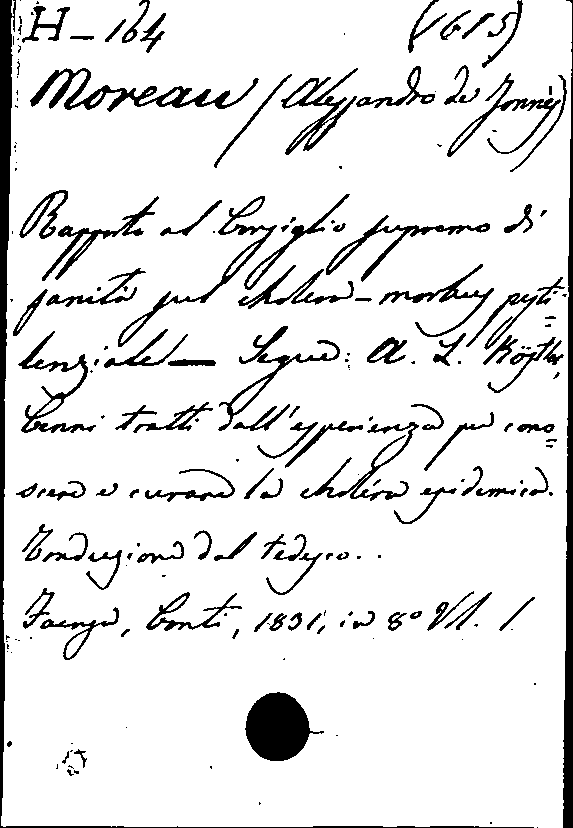 H-164 (1615)
Moreau (Alessandro de Jonnès)
Rapporto al Consiglio supremo di
sanità sul cholera-morbus pesti=
lenziale — Segue: A. L. Köstler,
Cenni tratti dall'esperienza per cono=
scere e curare la choléra epidemica.
Traduzione dal tedesco..
Faenza, Conti, 1831, in 8° Vl. 1